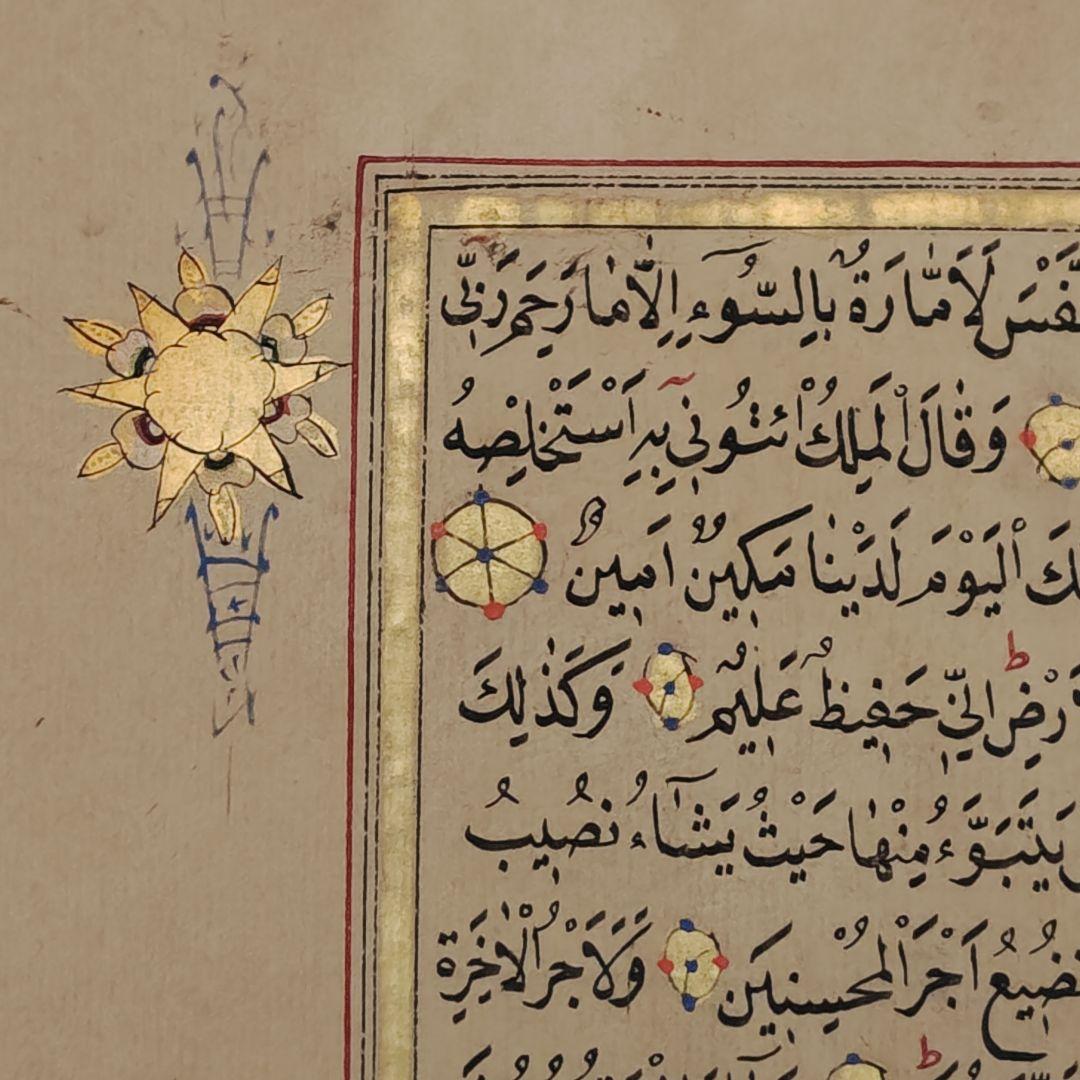 لَاَمَّارَةٌ بِالسُّوءِ اِلَّا مَا رَحِمَ رَبّٖى
وَقَالَ الْمَلِكُ ائْتُونٖى بِهٖ اَسْتَخْلِصْهُ
الْيَوْمَ لَدَيْنَا مَكٖينٌ اَمٖينٌ
اِنّٖى حَفٖيظٌ عَلٖيمٌ وَكَذٰلِكَ
يَتَبَوَّءُ مِنْهَا حَيْثُ يَشَٓاءُ نُصٖيبُ
نُضٖيعُ اَجْرَ الْمُحْسِنٖينَ وَلَاَجْرُ الْاٰخِرَةِ